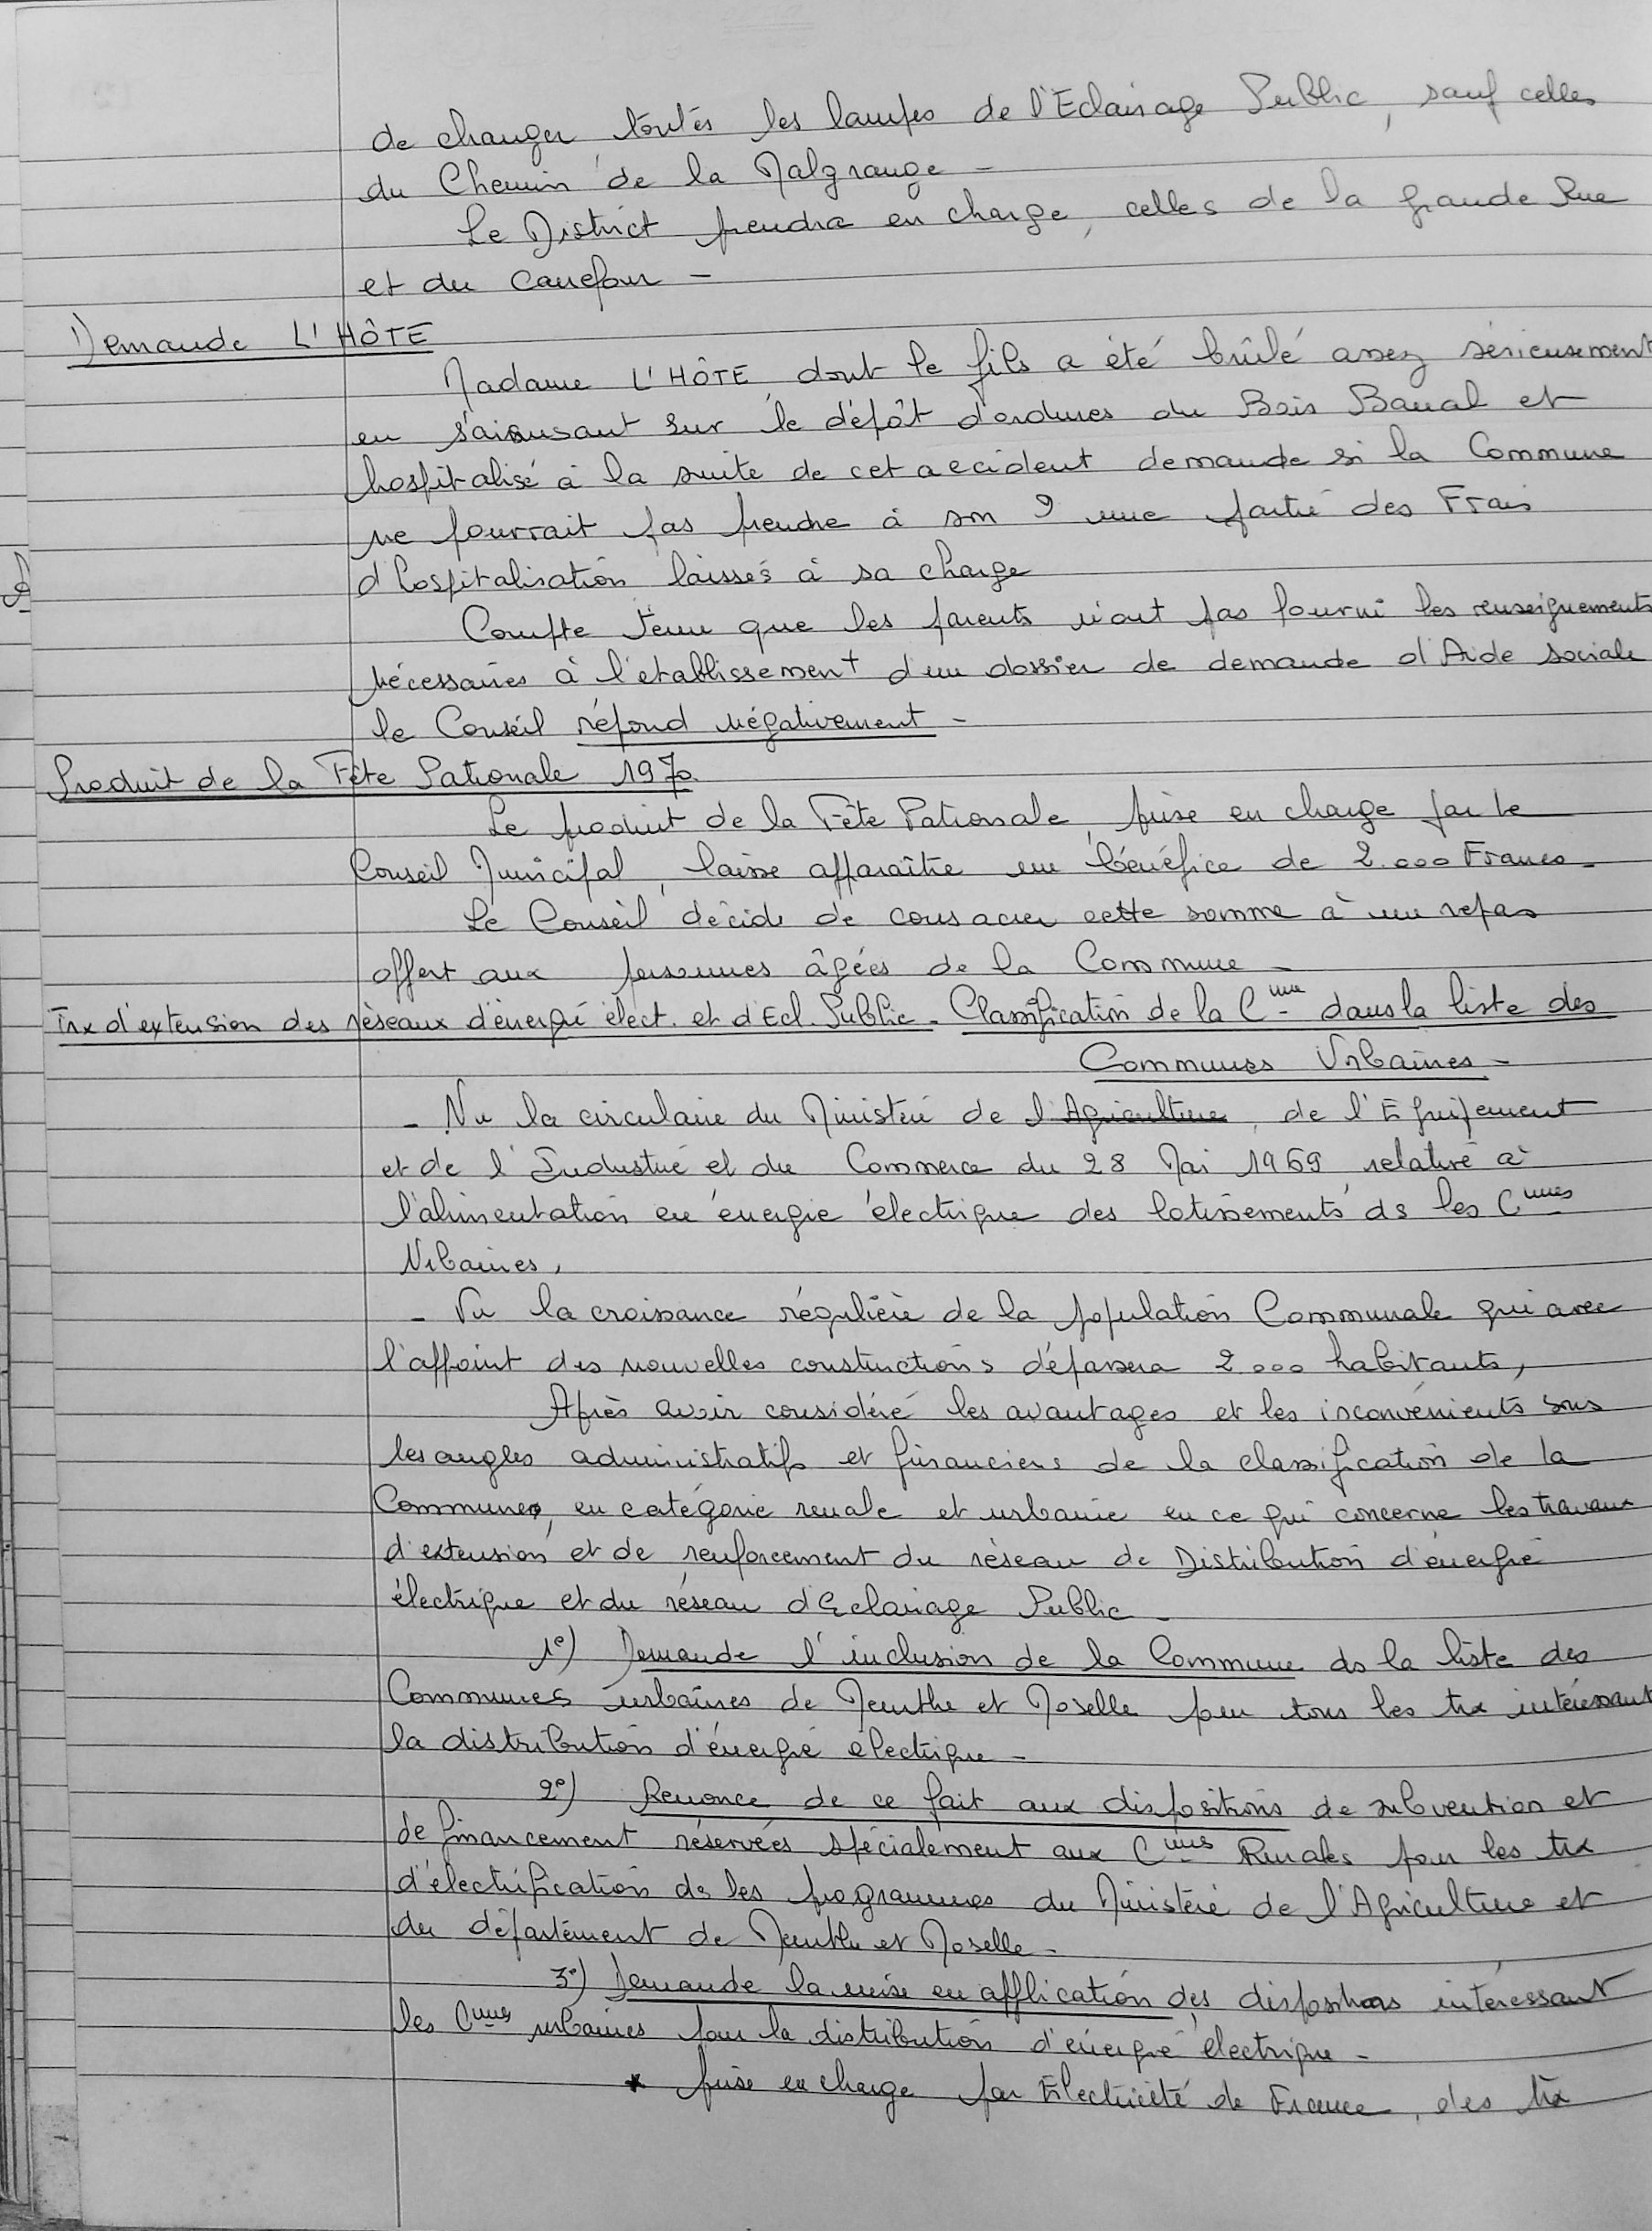 de changer toutes les lampes de l'Eclairage Public, sauf celles
du Chemin de la Malgrange -
Le District prendra en charge, celles de la grande Rue
et du Carrefour -
Demande L'HÔTE
Madame L'HÔTE dont le fils a été brûlé assez sérieusement
en s'amusant sur le dépôt d'ordures du Bois Banal et
hospitalisé à la suite de cet accident demande si la Commune
ne pourrait pas prendre à son une partie des Frais
d'hospitalisation laissés à sa charge
Compte tenu que les parents n'ont pas fourni les renseignements
nécessaires à l'établissement d'un dossier de demande d'Aide sociale
le Conseil répond négativement -
Produit de la Fête Patronale 1970
Le produit de la Fête Patronale, prise en charge par le
Conseil Municipal, laisse apparaître un bénéfice de 2.000 Francs -
Le Conseil décide de consacrer cette somme à un repas
offert aux personnes âgées de la Commune -
Trx d'extension des réseaux d'énergie élect. et d'Ecl. Public - Classification de la Cmune dans la liste des
Communes Urbaines -
- Vu la circulaire du Ministère de l'Agriculture, de l'Equipement
et de l'Industrie et du Commerce du 28 Mai 1969 relative à
l'alimentation en énergie électrique des lotissements ds les Cmunes
Urbaines,
- Vu la croissance régulière de la population Communale qui avec
l'appoint des nouvelles constructions dépassera 2.000 habitants,
Après avoir considéré les avantages et les inconvénients sous
les angles administratifs et financiers de la classification de la
Commune, en catégorie rurale et urbaine en ce qui concerne les travaux
d'extension et de renforcement du réseau de Distribution d'énergie
électrique et du réseau d'Eclairage Public -
1°) Demande l'inclusion de la Commune ds la liste des
Communes urbaines de Meurthe et Moselle pour tous les trx intéressant
la distribution d'énergie électrique -
2°) Renonce de ce fait aux dispositions de subvention et
de financement réservées spécialement aux Cmunes Rurales pour les trx
d'électrification ds les programmes du Ministère de l'Agriculture et
du département de Meurthe et Moselle -
3°) Demande la mise en application des dispositions intéressant
les Cmunes urbaines pour la distribution d'énergie électrique -
* prise en charge par Electricité de France, des trx